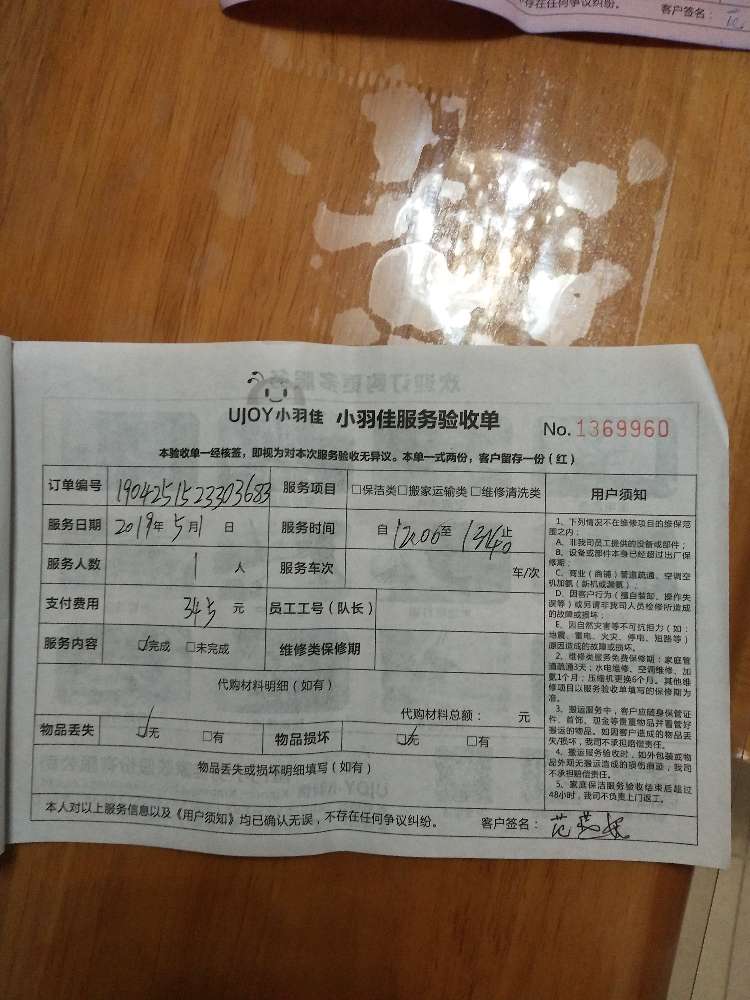 不存在任何争议纠纷。 客户签名：
欢迎订购更多服务
UJOY小羽佳 小羽佳服务验收单 No. 1369960
本验收单一经核签，即视为对本次服务验收无异议。本单一式两份，客户留存一份（红）
订单编号 1904251523303683 服务项目 □保洁类□搬家运输类□维修清洗类 用户须知
服务日期 2019年5月1日 服务时间 自12:06至 止
服务人数 1 人 服务车次 车/次
支付费用 345 元 员工工号（队长）
服务内容 ☑完成 □未完成 维修类保修期
代购材料明细（如有）
代购材料总额： 元
物品丢失 ☑无 □有 物品损坏 ☑无 □有
物品丢失或损坏明细填写（如有）
1、下列情况不在维修项目的维保范
围之内：
A、非我司员工提供的设备或部件；
B、设备或部件本身已经超过出厂保
修期；
C、商业（商铺）管道疏通、空调空
机加氨（新机或漏氨）；
D、因客户行为（擅自装卸、操作失
误等）或另请非我司人员检修所造成
的故障或损坏；
E、因自然灾害等不可抗拒力（如：
地震、雷电、火灾、停电、短路等）
原因造成的故障或损坏。
2、维修类服务免费保修期：家庭管
道疏通3天；水电维修、空调维修、加
氨1个月；压缩机更换6个月。其他维
修项目以服务验收单填写的保修期为
准。
3、搬运服务中，客户应随身保管证
件、首饰、现金等贵重物品并看管好
搬运的物品。如因客户造成的物品丢
失/损坏，我司不承担赔偿责任。
4、搬运服务验收时，如外包装或物
品外观无搬运造成的损伤痕迹，我司
不承担赔偿责任。
5、家庭保洁服务验收结束后超过
48小时，我司不负责上门返工。
本人对以上服务信息以及《用户须知》均已确认无误，不存在任何争议纠纷。 客户签名：范